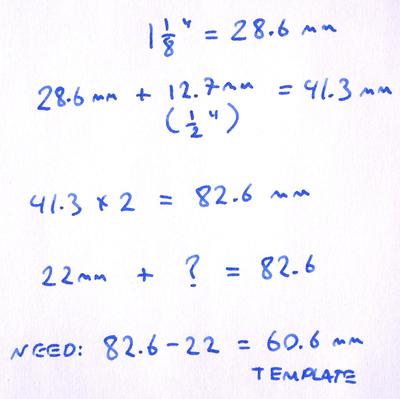 1 1/8" = 28.6 mm
28.6 mm + 12.7 mm = 41.3 mm
(1/2")
41.3 × 2 = 82.6 mm
22 mm + ? = 82.6
NEED: 82.6 - 22 = 60.6 mm
TEMPLATE